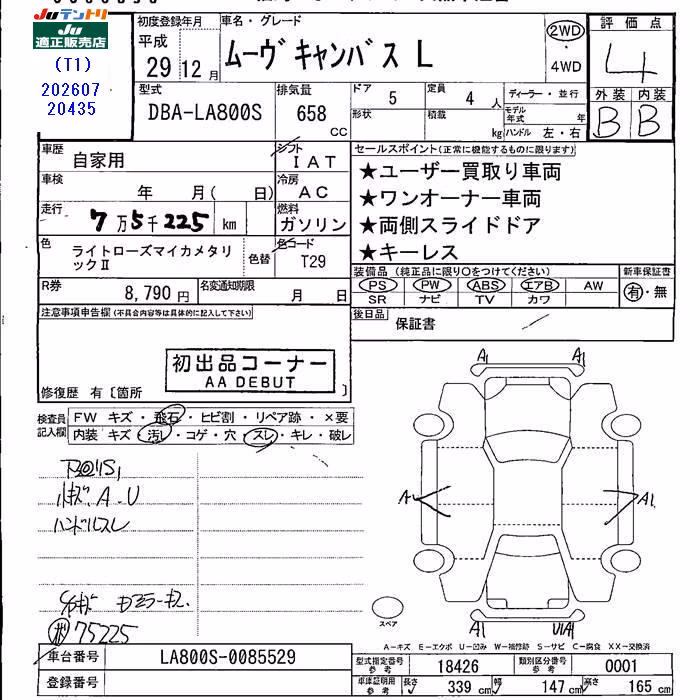 Juテントリ
Ju
適正販売店
(T1)
202607
20435
初度登録年月
平成
29 12 月
車名・グレード
ムーヴキャンバス L
2WD
4WD
評価点
4
外装 内装
B B
型式
DBA-LA800S
排気量
658
CC
ドア
5
定員
4 人
形状
積載
kg
ディーラー・並行
モデル年式 年
ハンドル 左・右
車歴
自家用
シフト
IAT
車検
年 月( 日)
冷房
AC
走行
7万5千225 km
燃料
ガソリン
色
ライトローズマイカメタリックⅡ
色替
色コード
T29
R券
8,790 円
名変通知期限
月 日
セールスポイント(正常に機能するものに限ります)
★ユーザー買取り車両
★ワンオーナー車両
★両側スライドドア
★キーレス
装備品 (純正品に限り○をつけてください)
PS PW ABS エアB AW
SR ナビ TV カワ
新車保証書
有・無
後日品
保証書
注意事項申告欄(不具合内容等は具体的に記入して下さい)
初出品コーナー
AA DEBUT
修復歴 有〔箇所 〕
検査員記入欄
FW キズ・飛石・ヒビ割・リペア跡・×要
内装 キズ・汚レ・コゲ・穴・スレ・キレ・破レ
小キズ、A-U
ハンドルスレ
75225
A1 A1
A A1
A1 U1A1
スペア
A-キズ E-エクボ U-凹み W-補修跡 S-サビ C-腐食 XX-交換済
車台番号
LA800S-0085529
登録番号
型式指定番号 参考
18426
類別区分番号 参考
0001
車庫証明用 参考
長さ 339 cm
幅 147 cm
高さ 165 cm